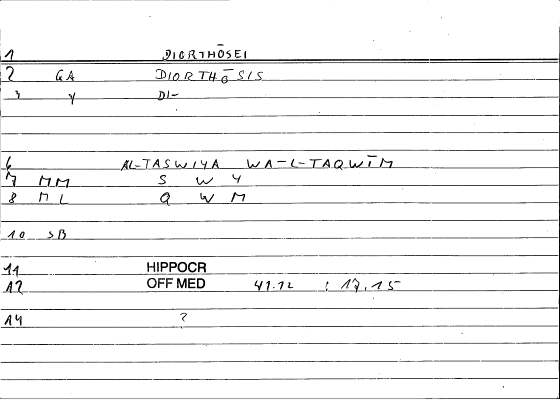 1 DIORTHŌSEI
2 GA DIORTHŌSIS
3 Y DI-
6 AL-TASWIYA WA-L-TAQWĪM
7 MM S W Y
8 ML Q W M
10 SB
11 HIPPOCR
12 OFF MED 41.12 : 17,15
14 ?